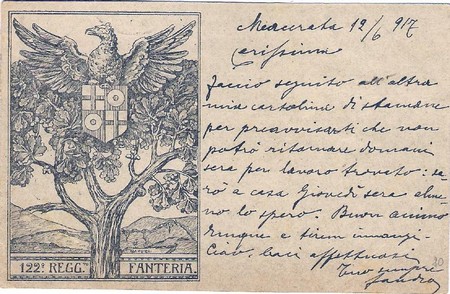 Macerata 12/6 917
Carissima
Faccio seguito all'altra
mia cartolina di stamane
per preavvisarti che non
potrò ritornare domani
sera per lavoro trovato: sa-
rò a casa Giovedì sera alme-
no lo spero. Buon animo
dunque e tirem innanzi -
Ciao, baci affettuosi
Tuo sempre
Sandro
122º REGG. FANTERIA.